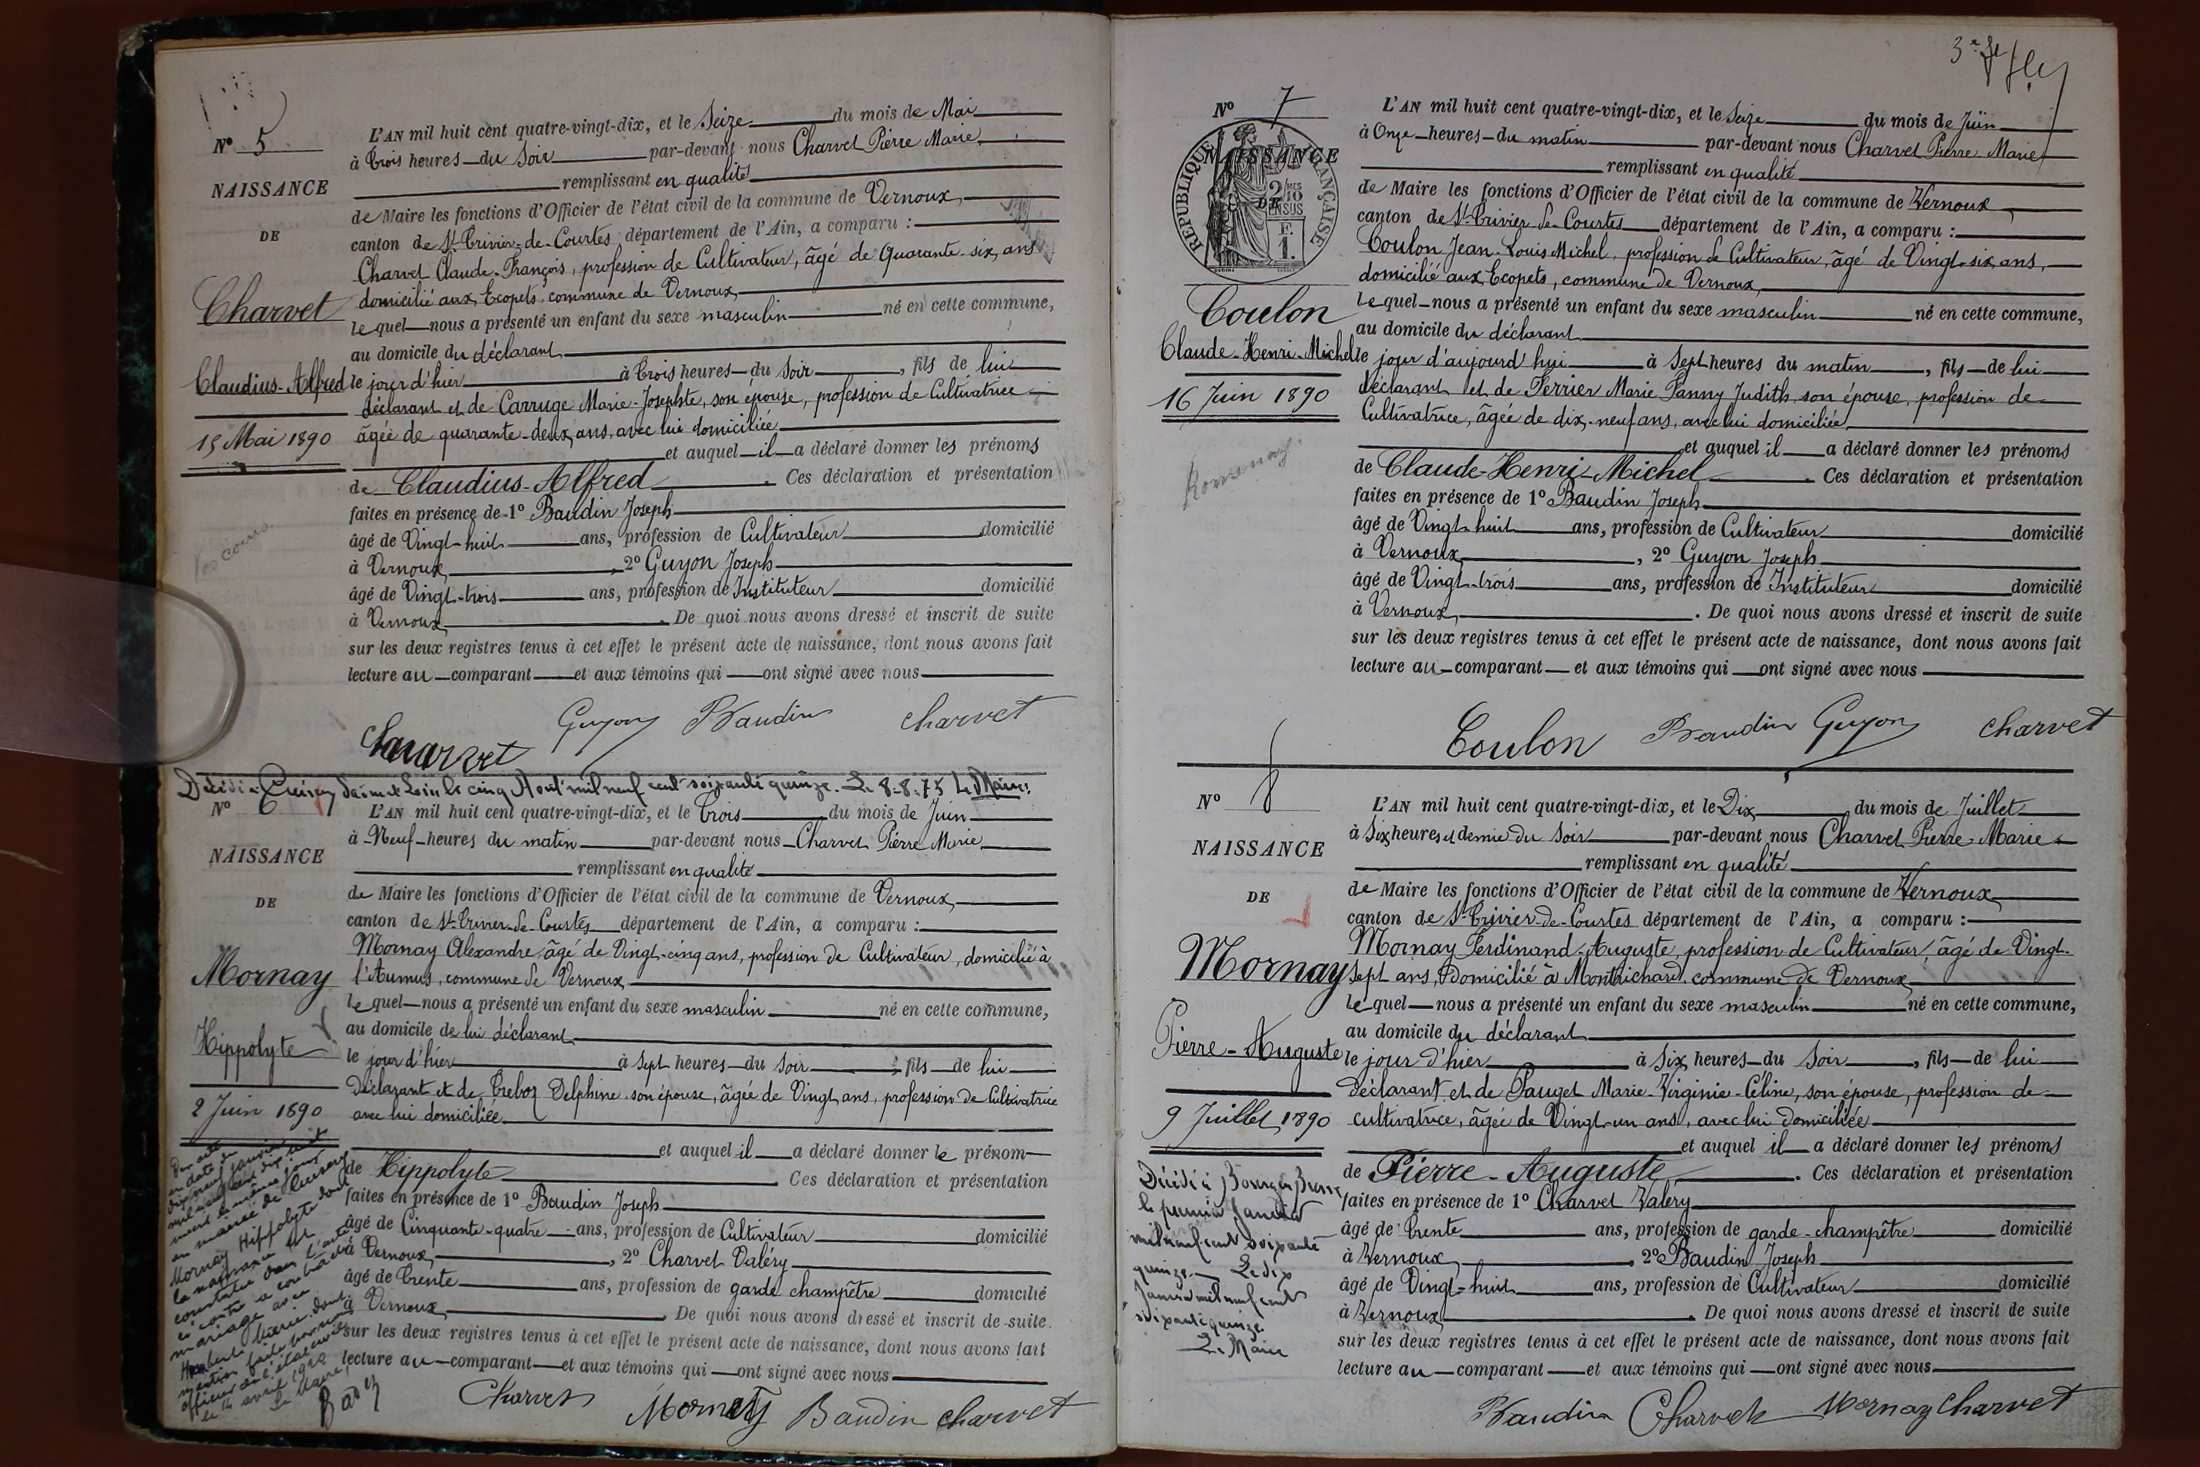 N° 5
NAISSANCE
DE
Charvet
Claudius-Alfred
15 Mai 1890
L'AN mil huit cent quatre-vingt-dix, et le Seize du mois de Mai
à Trois heures du Soir par-devant nous Charvet Pierre Marie
remplissant en qualité
de Maire les fonctions d'Officier de l'état civil de la commune de Vernoux,
canton de St-Trivier-de-Courtes département de l'Ain, a comparu :
Charvet Claude-François, profession de Cultivateur, âgé de Quarante-six ans
domicilié aux Ecopets, commune de Vernoux
lequel nous a présenté un enfant du sexe masculin né en cette commune,
au domicile du déclarant
le jour d'hier à Trois heures du Soir, fils de lui
déclarant et de Carruge Marie-Josephte, son épouse, profession de Cultivatrice
âgée de quarante-deux ans, avec lui domiciliée
et auquel il a déclaré donner les prénoms
de Claudius-Alfred. Ces déclaration et présentation
faites en présence de 1° Baudin Joseph
âgé de Vingt-huit ans, profession de Cultivateur domicilié
à Vernoux, 2° Guyon Joseph
âgé de Vingt-trois ans, profession de Instituteur domicilié
à Vernoux. De quoi nous avons dressé et inscrit de suite
sur les deux registres tenus à cet effet le présent acte de naissance, dont nous avons fait
lecture au comparant et aux témoins qui ont signé avec nous
Charvet Guyon Baudin Charvet
Décédé à Cuisery Saône & Loire le cinq Août mil neuf cent soixante quinze. Le 8-8-75 Le Maire:
N° 6
NAISSANCE
DE
Mornay
Hippolyte
2 Juin 1890
L'AN mil huit cent quatre-vingt-dix, et le Trois du mois de Juin
à Neuf heures du matin par-devant nous Charvet Pierre Marie
remplissant en qualité
de Maire les fonctions d'Officier de l'état civil de la commune de Vernoux,
canton de St-Trivier-de-Courtes département de l'Ain, a comparu :
Mornay Alexandre, âgé de Vingt-cinq ans, profession de Cultivateur, domicilié à
l'Aumus, commune de Vernoux
lequel nous a présenté un enfant du sexe masculin né en cette commune,
au domicile de lui déclarant
le jour d'hier à Sept heures du Soir, fils de lui
Déclarant et de Treboz Delphine son épouse, âgée de Vingt ans, profession de Cultivatrice
avec lui domiciliée
et auquel il a déclaré donner le prénom
de Hippolyte. Ces déclaration et présentation
faites en présence de 1° Baudin Joseph
âgé de Cinquante-quatre ans, profession de Cultivateur domicilié
à Vernoux, 2° Charvet Valéry
âgé de Trente ans, profession de garde champêtre domicilié
à Vernoux. De quoi nous avons dressé et inscrit de suite
sur les deux registres tenus à cet effet le présent acte de naissance, dont nous avons fait
lecture au comparant et aux témoins qui ont signé avec nous
en date du
dix neuf janvier
mil neuf cent dix huit
en mairie de Cuisery
Mornay Hippolyte dont
la naissance est
constatée dans l'acte
ci contre a contracté
mariage avec
Humbert Marie dont
mention faite par nous
officier de l'état civil
le 14 avril
Le Maire,
Charvet Mornay Baudin Charvet
3e
N° 7
NAISSANCE
DE
RÉPUBLIQUE FRANÇAISE
Coulon
Claude-Henri-Michel
16 Juin 1890
Romenay
L'AN mil huit cent quatre-vingt-dix, et le Seize du mois de Juin
à Onze heures du matin par-devant nous Charvet Pierre Marie
remplissant en qualité
de Maire les fonctions d'Officier de l'état civil de la commune de Vernoux
canton de St-Trivier-de-Courtes département de l'Ain, a comparu :
Coulon Jean-Louis Michel, profession de Cultivateur, âgé de Vingt-six ans,
domicilié aux Ecopets, commune de Vernoux
lequel nous a présenté un enfant du sexe masculin né en cette commune,
au domicile du déclarant
le jour d'aujourd'hui à Sept heures du matin, fils de lui
déclarant et de Perrier Marie Fanny Judith son épouse, profession de
Cultivatrice, âgée de dix-neuf ans, avec lui domiciliée
et auquel il a déclaré donner les prénoms
de Claude-Henri-Michel. Ces déclaration et présentation
faites en présence de 1° Baudin Joseph
âgé de Vingt-huit ans, profession de Cultivateur domicilié
à Vernoux, 2° Guyon Joseph
âgé de Vingt-trois ans, profession de Instituteur domicilié
à Vernoux. De quoi nous avons dressé et inscrit de suite
sur les deux registres tenus à cet effet le présent acte de naissance, dont nous avons fait
lecture au comparant et aux témoins qui ont signé avec nous
Coulon Baudin Guyon Charvet
N° 8
NAISSANCE
DE
Mornay
Pierre-Auguste
9 Juillet 1890
L'AN mil huit cent quatre-vingt-dix, et le Dix du mois de Juillet
à Six heures et demie du Soir par-devant nous Charvet Pierre-Marie
remplissant en qualité
de Maire les fonctions d'Officier de l'état civil de la commune de Vernoux
canton de St-Trivier-de-Courtes département de l'Ain, a comparu :
Mornay Ferdinand-Auguste, profession de Cultivateur, âgé de Vingt-
sept ans, domicilié à Montrichard commune de Vernoux
lequel nous a présenté un enfant du sexe masculin né en cette commune,
au domicile du déclarant
le jour d'hier à Six heures du Soir, fils de lui
Déclarant et de Pauget Marie-Virginie-Céline, son épouse, profession de
cultivatrice, âgée de Vingt-un ans, avec lui domiciliée
et auquel il a déclaré donner les prénoms
de Pierre-Auguste. Ces déclaration et présentation
faites en présence de 1° Charvet Valéry
âgé de Trente ans, profession de garde-champêtre domicilié
à Vernoux 2° Baudin Joseph
âgé de Vingt-huit ans, profession de Cultivateur domicilié
à Vernoux. De quoi nous avons dressé et inscrit de suite
sur les deux registres tenus à cet effet le présent acte de naissance, dont nous avons fait
lecture au comparant et aux témoins qui ont signé avec nous
Décédé à Bourg en Bresse
le premier Janvier
mil neuf cent soixante
quinze. Le dix
Janvier mil neuf cent
soixante quinze.
Le Maire
Baudin Charvet Mornay Charvet